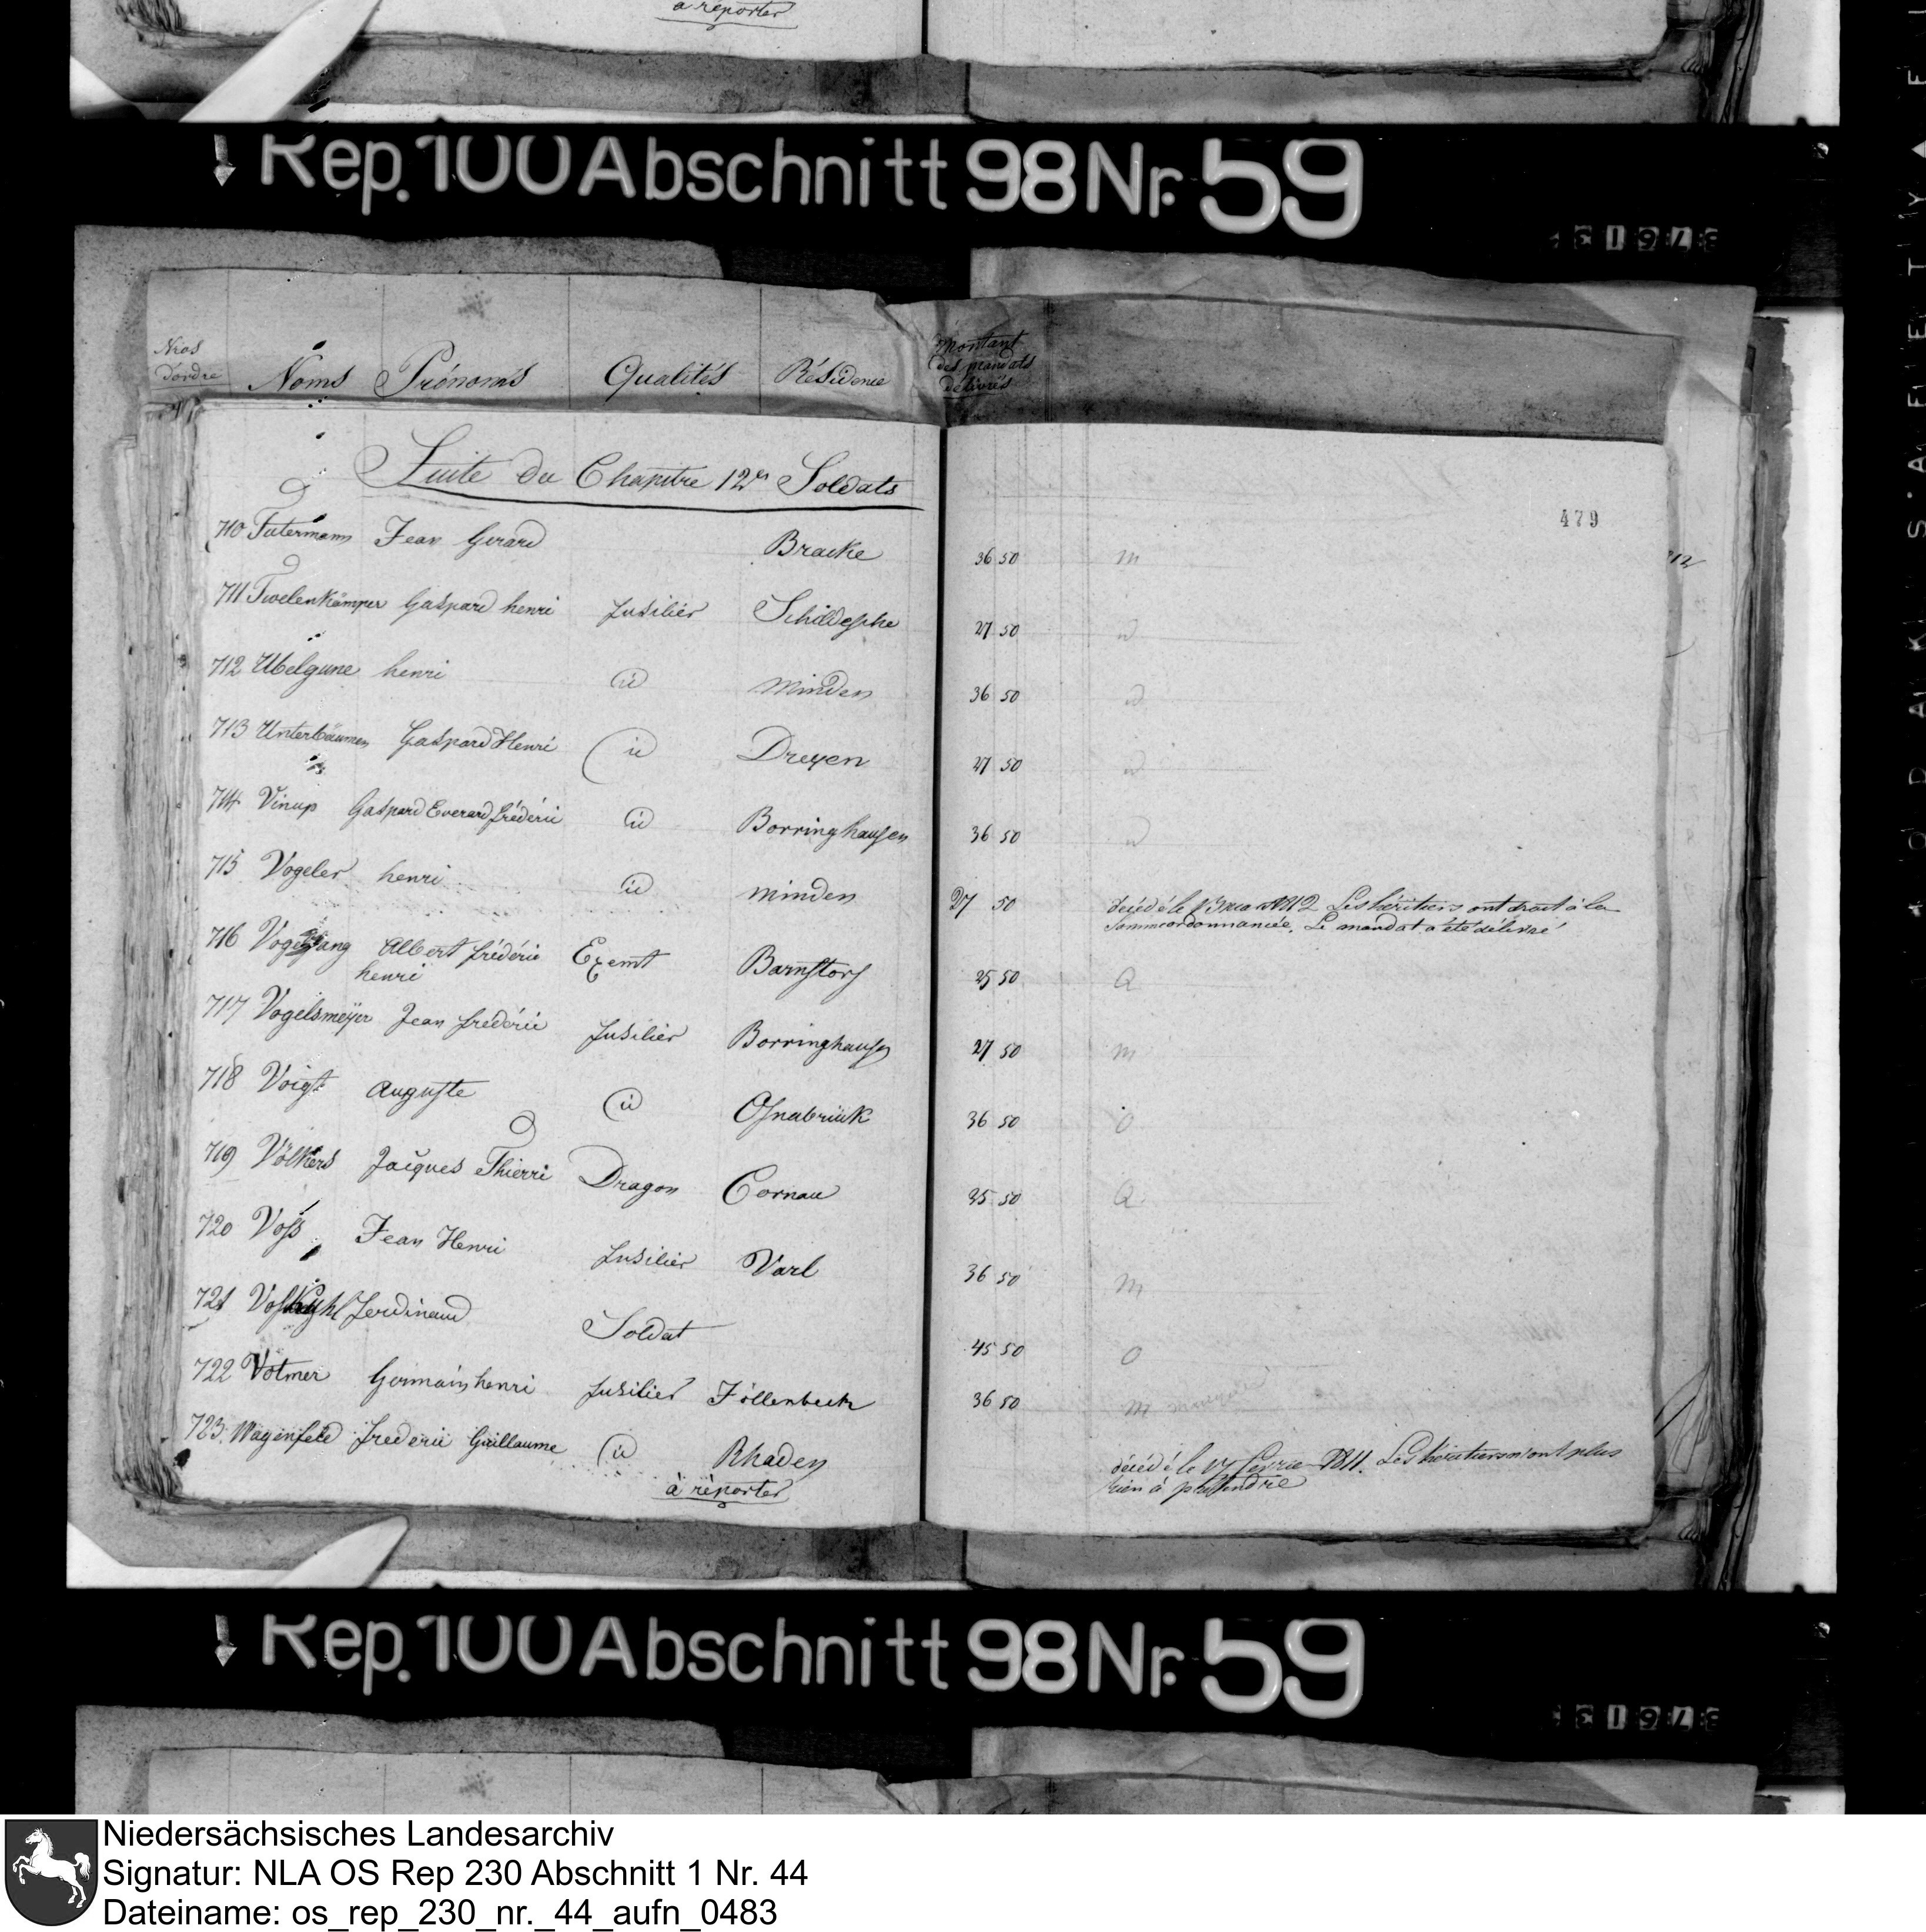 à réporter
Rep. 100 Abschnitt 98 Nr. 59
Nros d'ordre Noms Prénoms Qualités Résidence Montant des mandats délivrés
Suite du Chapitre 12 Soldats
479
710 Jean Gerard Bracke 36 50 m
711 Twelenkämper Gaspard henri fusilier Schildesche 27 50 d
712 Ubelgune henri id minden 36 50 d
713 Unterbäumen Gaspard Henri id Dreyen 27 50 d
714 Vinup Gaspard Everard fréderic id Borringhausen 36 50 d
715 Vogeler henri id minden 27 50 décédé le 13 mars 1812 Les héritiers ont droit à la
somme ordonnancée. Le mandat a été délivré
716 Vogelsang Albert fréderic Exemt Barnstorf 25 50 Q
henri
717 Vogelsmeÿer Jean fréderic fusilier Borringhausen 27 50 m
718 Voigt Auguste id Osnabrück 36 50 O
719 Völkers Jacques Thierri Dragon Cornau 25 50 Q
720 Voss Jean Henri fusilier Varl 36 50 m
721 Ferdinand Soldat 45 50 O
722 Votmer Germain henri fusilier Föllenbeck 36 50 m
723 Wagenfeld frederic Guillaume id Rhaden décédé le 17 fevrier 1811. Les héritiers n'ont plus
rien à prétendre
à réporter
Rep. 100 Abschnitt 98 Nr. 59
Niedersächsisches Landesarchiv
Signatur: NLA OS Rep 230 Abschnitt 1 Nr. 44
Dateiname: os_rep_230_nr._44_aufn_0483